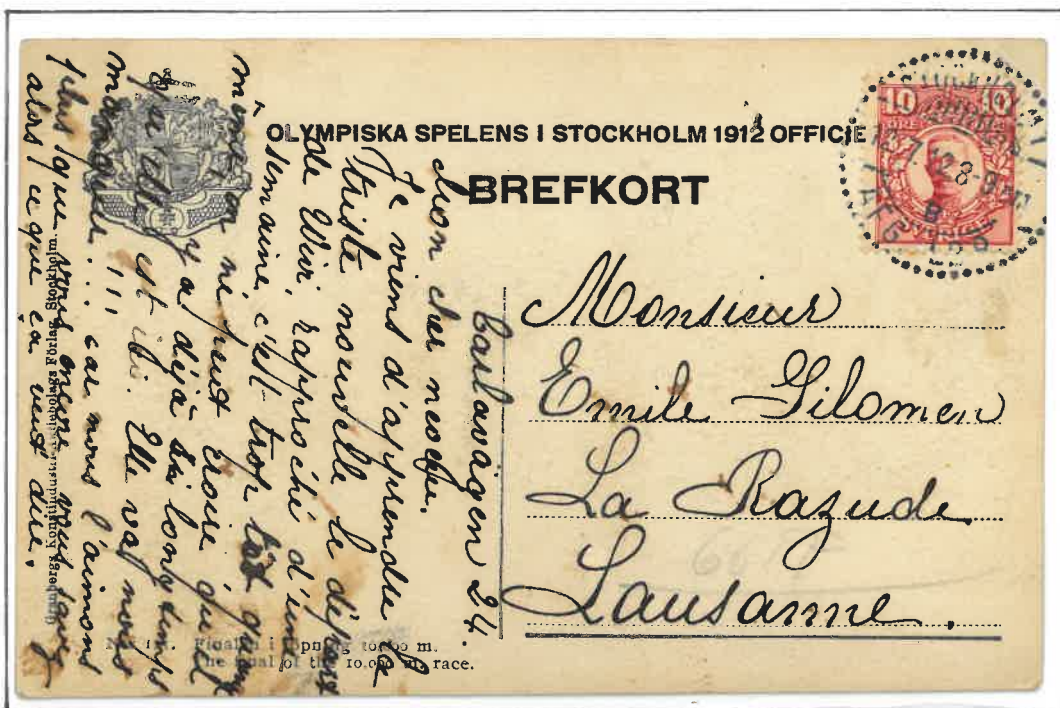 OLYMPISKA SPELENS I STOCKHOLM 1912 OFFICIE
BREFKORT
10 10
SVERIGE
Monsieur
Emile Gilomen
La Razude
Lausanne.
Carlavägen 24.
Mon cher
Je viens d'apprendre la
triste nouvelle le départ
de rapproché d'une
semaine, c'est trop tôt
même on ne peut croire qu'il
y a déjà si longtemps
qu'elle est ici. Elle va nous
manquer!!! ... car nous l'aimons
plus que vous savez
alors ce que ça veut dire.
Granbergs Konstindustri-Aktiebolags Förlag, Stockholm.
Finalen i löpning 10,000 m.
The final of the 10,000 m. race.